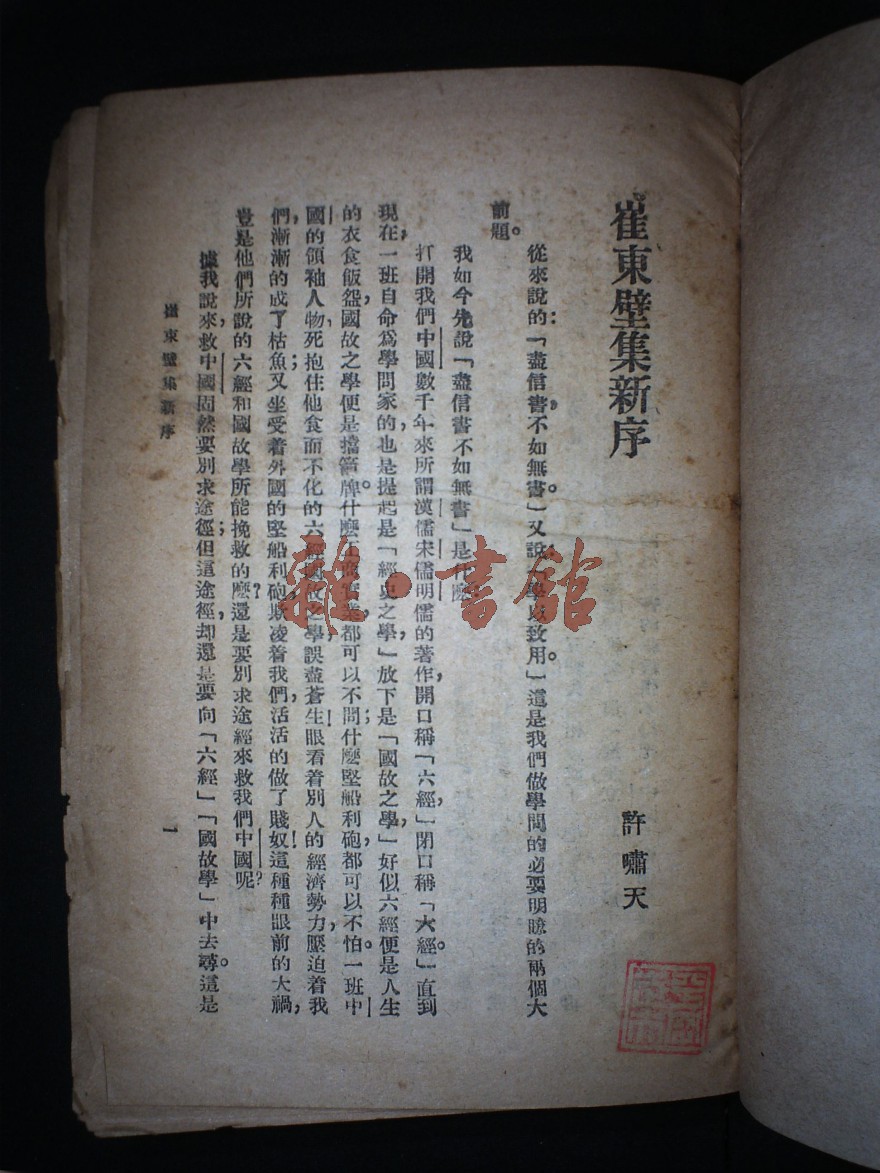 崔東壁集新序
許嘯天
從來說的：「盡信書，不如無書。」又說：「學以致用。」這是我們做學問的必要明瞭的兩個大
前題。
我如今先說「盡信書不如無書」是什麼
打開我們中國數千年來所謂漢儒宋儒明儒的著作，開口稱「六經，」閉口稱「六經。」一直到
現在，一班自命爲學問家的，也是提起是「經史之學，」放下是「國故之學，」好似六經便是人生
的衣食飯盌，國故之學便是擋箭牌。什麼工商實業，都可以不問；什麼堅船利砲，都可以不怕。一班中
國的領袖人物，死抱住他食而不化的六經國故之學，誤盡蒼生！眼看着別人的經濟勢力，壓迫着我
們，漸漸的成了枯魚；又坐受着外國的堅船利砲，欺凌着我們，活活的做了賤奴！這種種眼前的大禍，
豈是他們所說的六經和國故學所能挽救的麼？還是要別求途經來救我們中國呢？
據我說來，救中國固然要別求途徑；但這途徑，却還是要向「六經」「國故學」中去尋。這是
崔東壁集新序
一
雜·書館